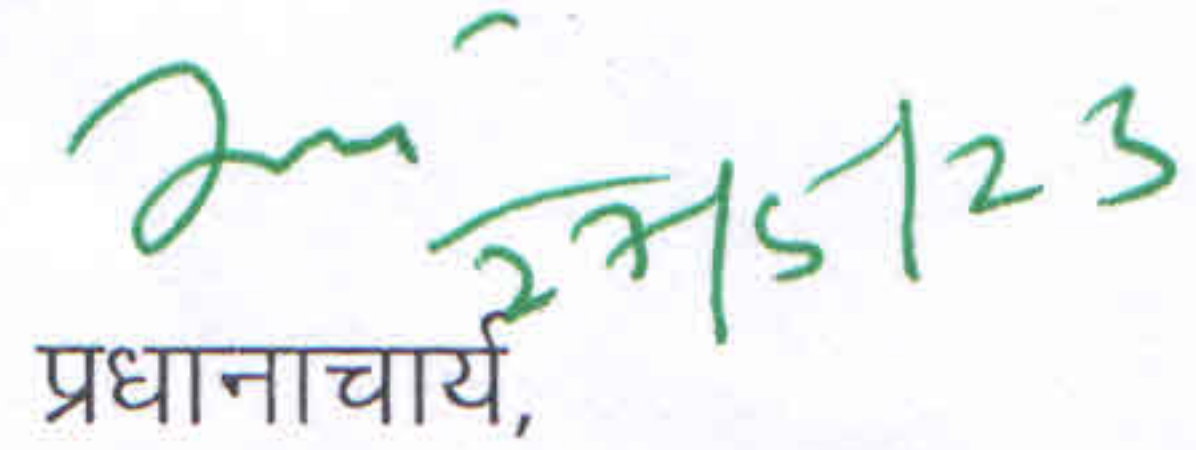 27/5/23
प्रधानाचार्य,